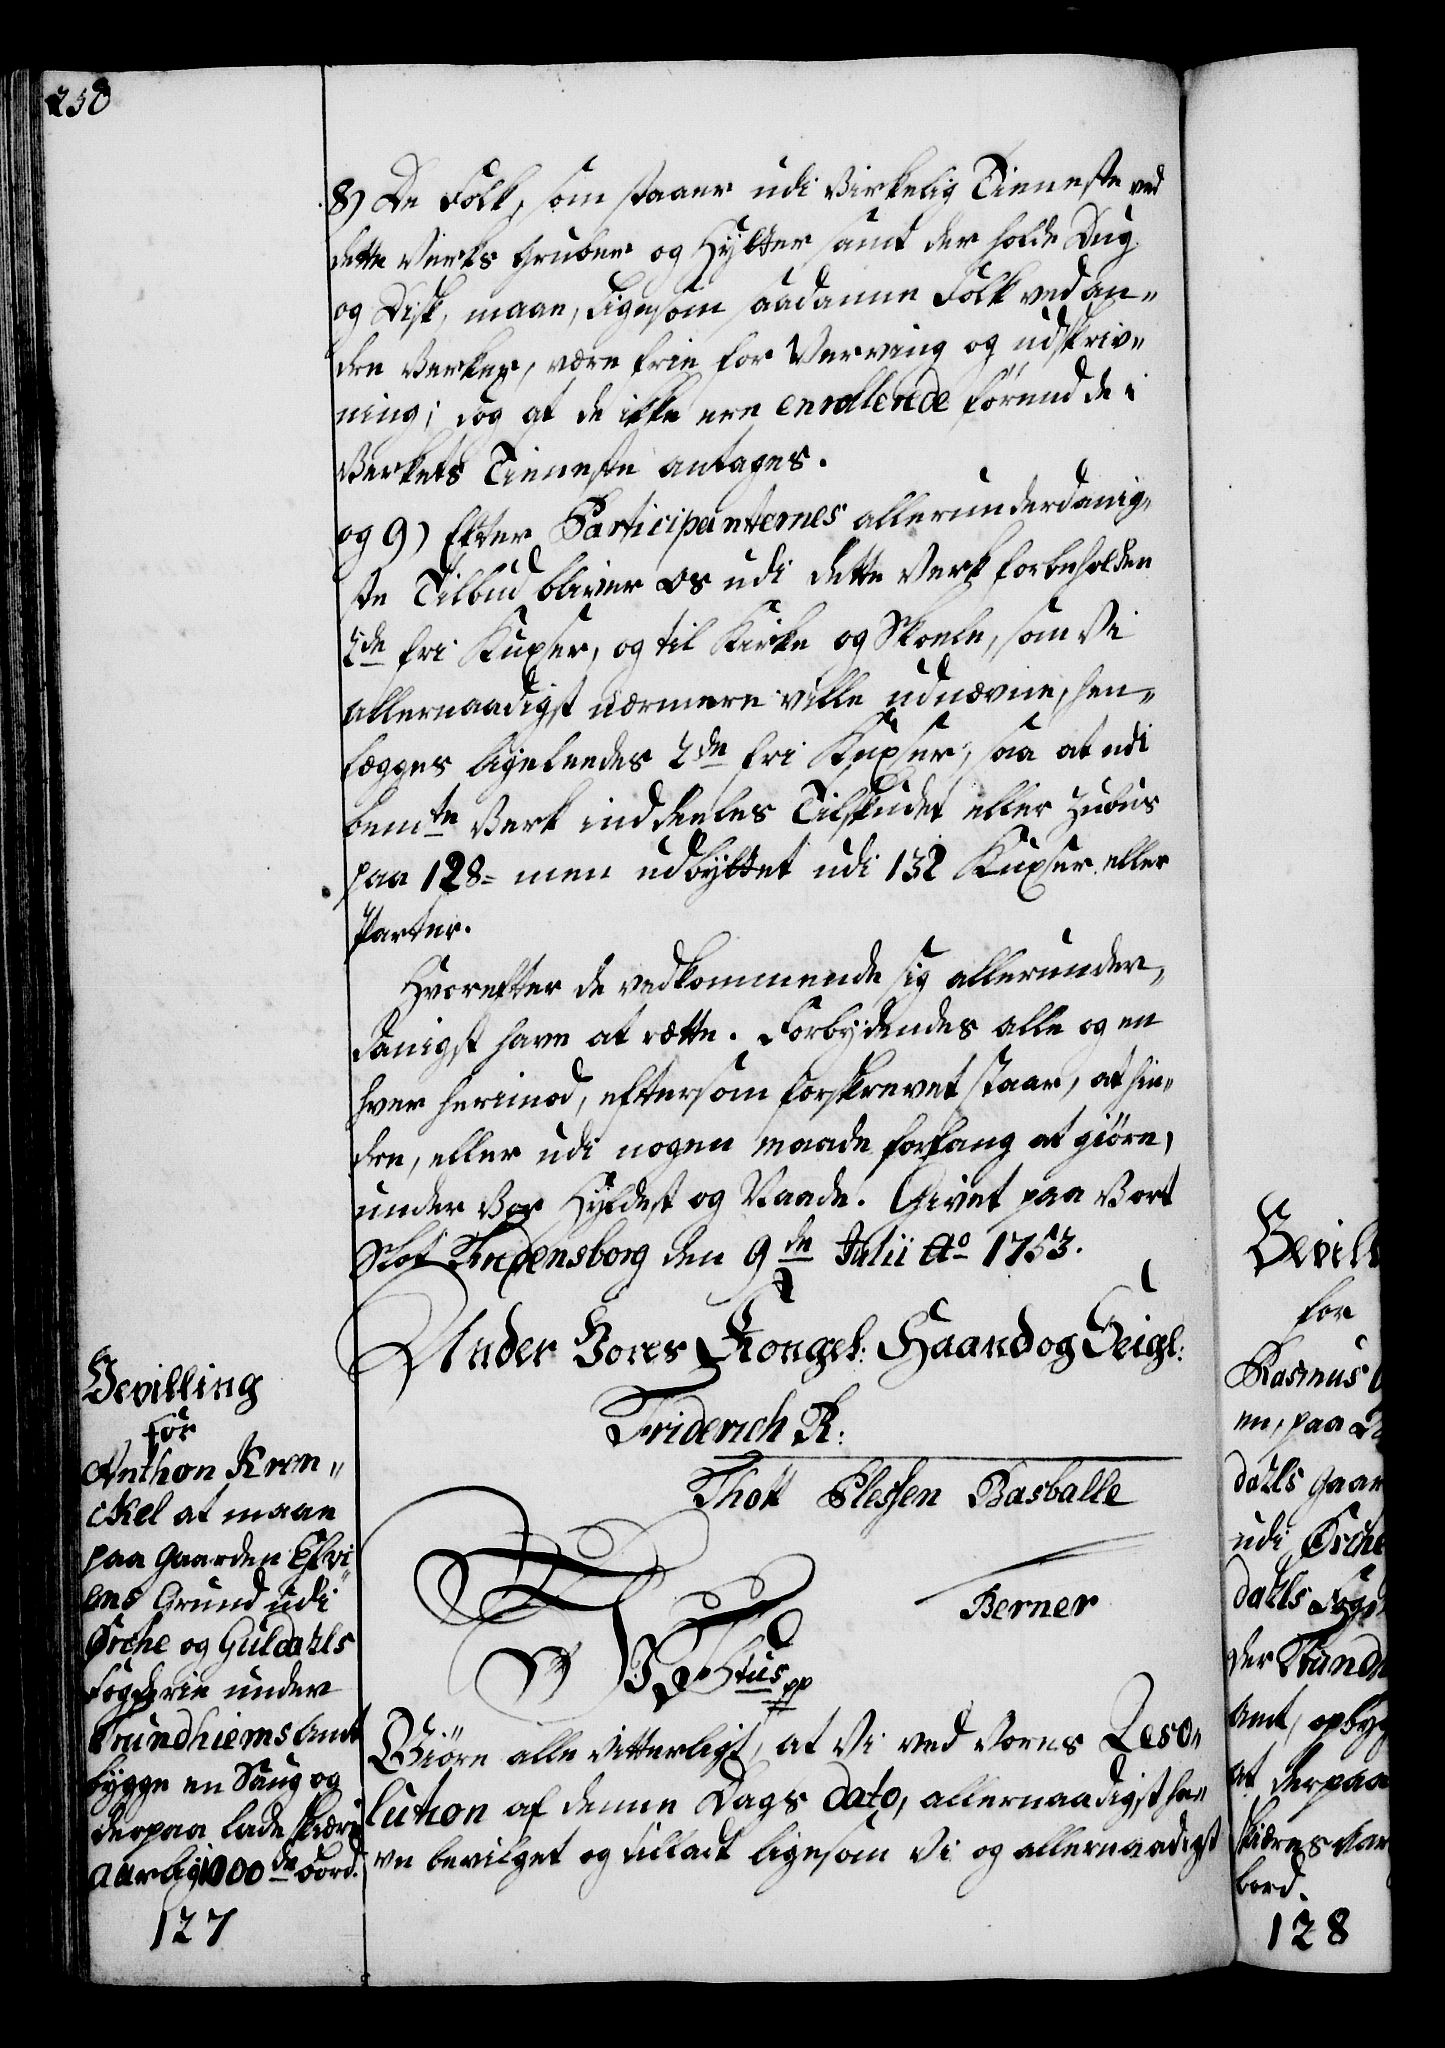 258
8) De Folk, som staaer udi Virkelig Tieneste ved
dette Verks Gruber og Hytter samt der holde Dug
og Disk, maae, ligesom saadanne Folk ved an-
dre Verker, være frie for Verving og udskriv-
ning; dog at de ikke ere enrollerede förend de i
Verkets Tieneste antages.
og 9) Efter Participanternes allerunderdanig-
ste Tilbud bliver os udi dette Verk forbeholden
2de fri Kuxser, og til Kirke og Skoele, som Vi
allernaadigst nærmere ville udnævne, hen-
legges ligeleedes 2de fri Kuxser, saa at udi
bemte Verk inddeeles Tilskudet eller Zubus
paa 128= men udbyttet udi 132 Kuxser eller
Parter.
Hvorefter de vedkommende sig allerunder-
danigst have at rætte. Forbydendes alle og en
hver herimod, eftersom forskrevet staar, at hin-
dre, eller udi nogen maade forfang at giöre,
under Vor Hyldest og Naade. Givet paa Vort
Slot Fredensborg den 9de Julii Ao 1753.
Under Vores Kongel: Haand og Seigl:
Friderich R:
Thott Plessen Basballe
Berner
Bevilling
for
Anthon Kron-
ckel at maae
paa Gaarden
Grund udi
Örche og Guldahls
Fogderie under
Trundhiems Amt
bygge en Saug og
derpaa lade skiære
aarlig 1000de bord.
127
Giöre alle vitterligt, at Vi ved vores Reso-
lution af denne Dags Dato, allernaadigst ha-
ve bevilget og tilladt ligesom Vi og allernaadigst
Bevill
for
Rasmus
en, paa
dahls Gaar
udi Örche
dahls Fog
der Trundh
Amt, opbyg
at derpaa
skiæres
bord.
128